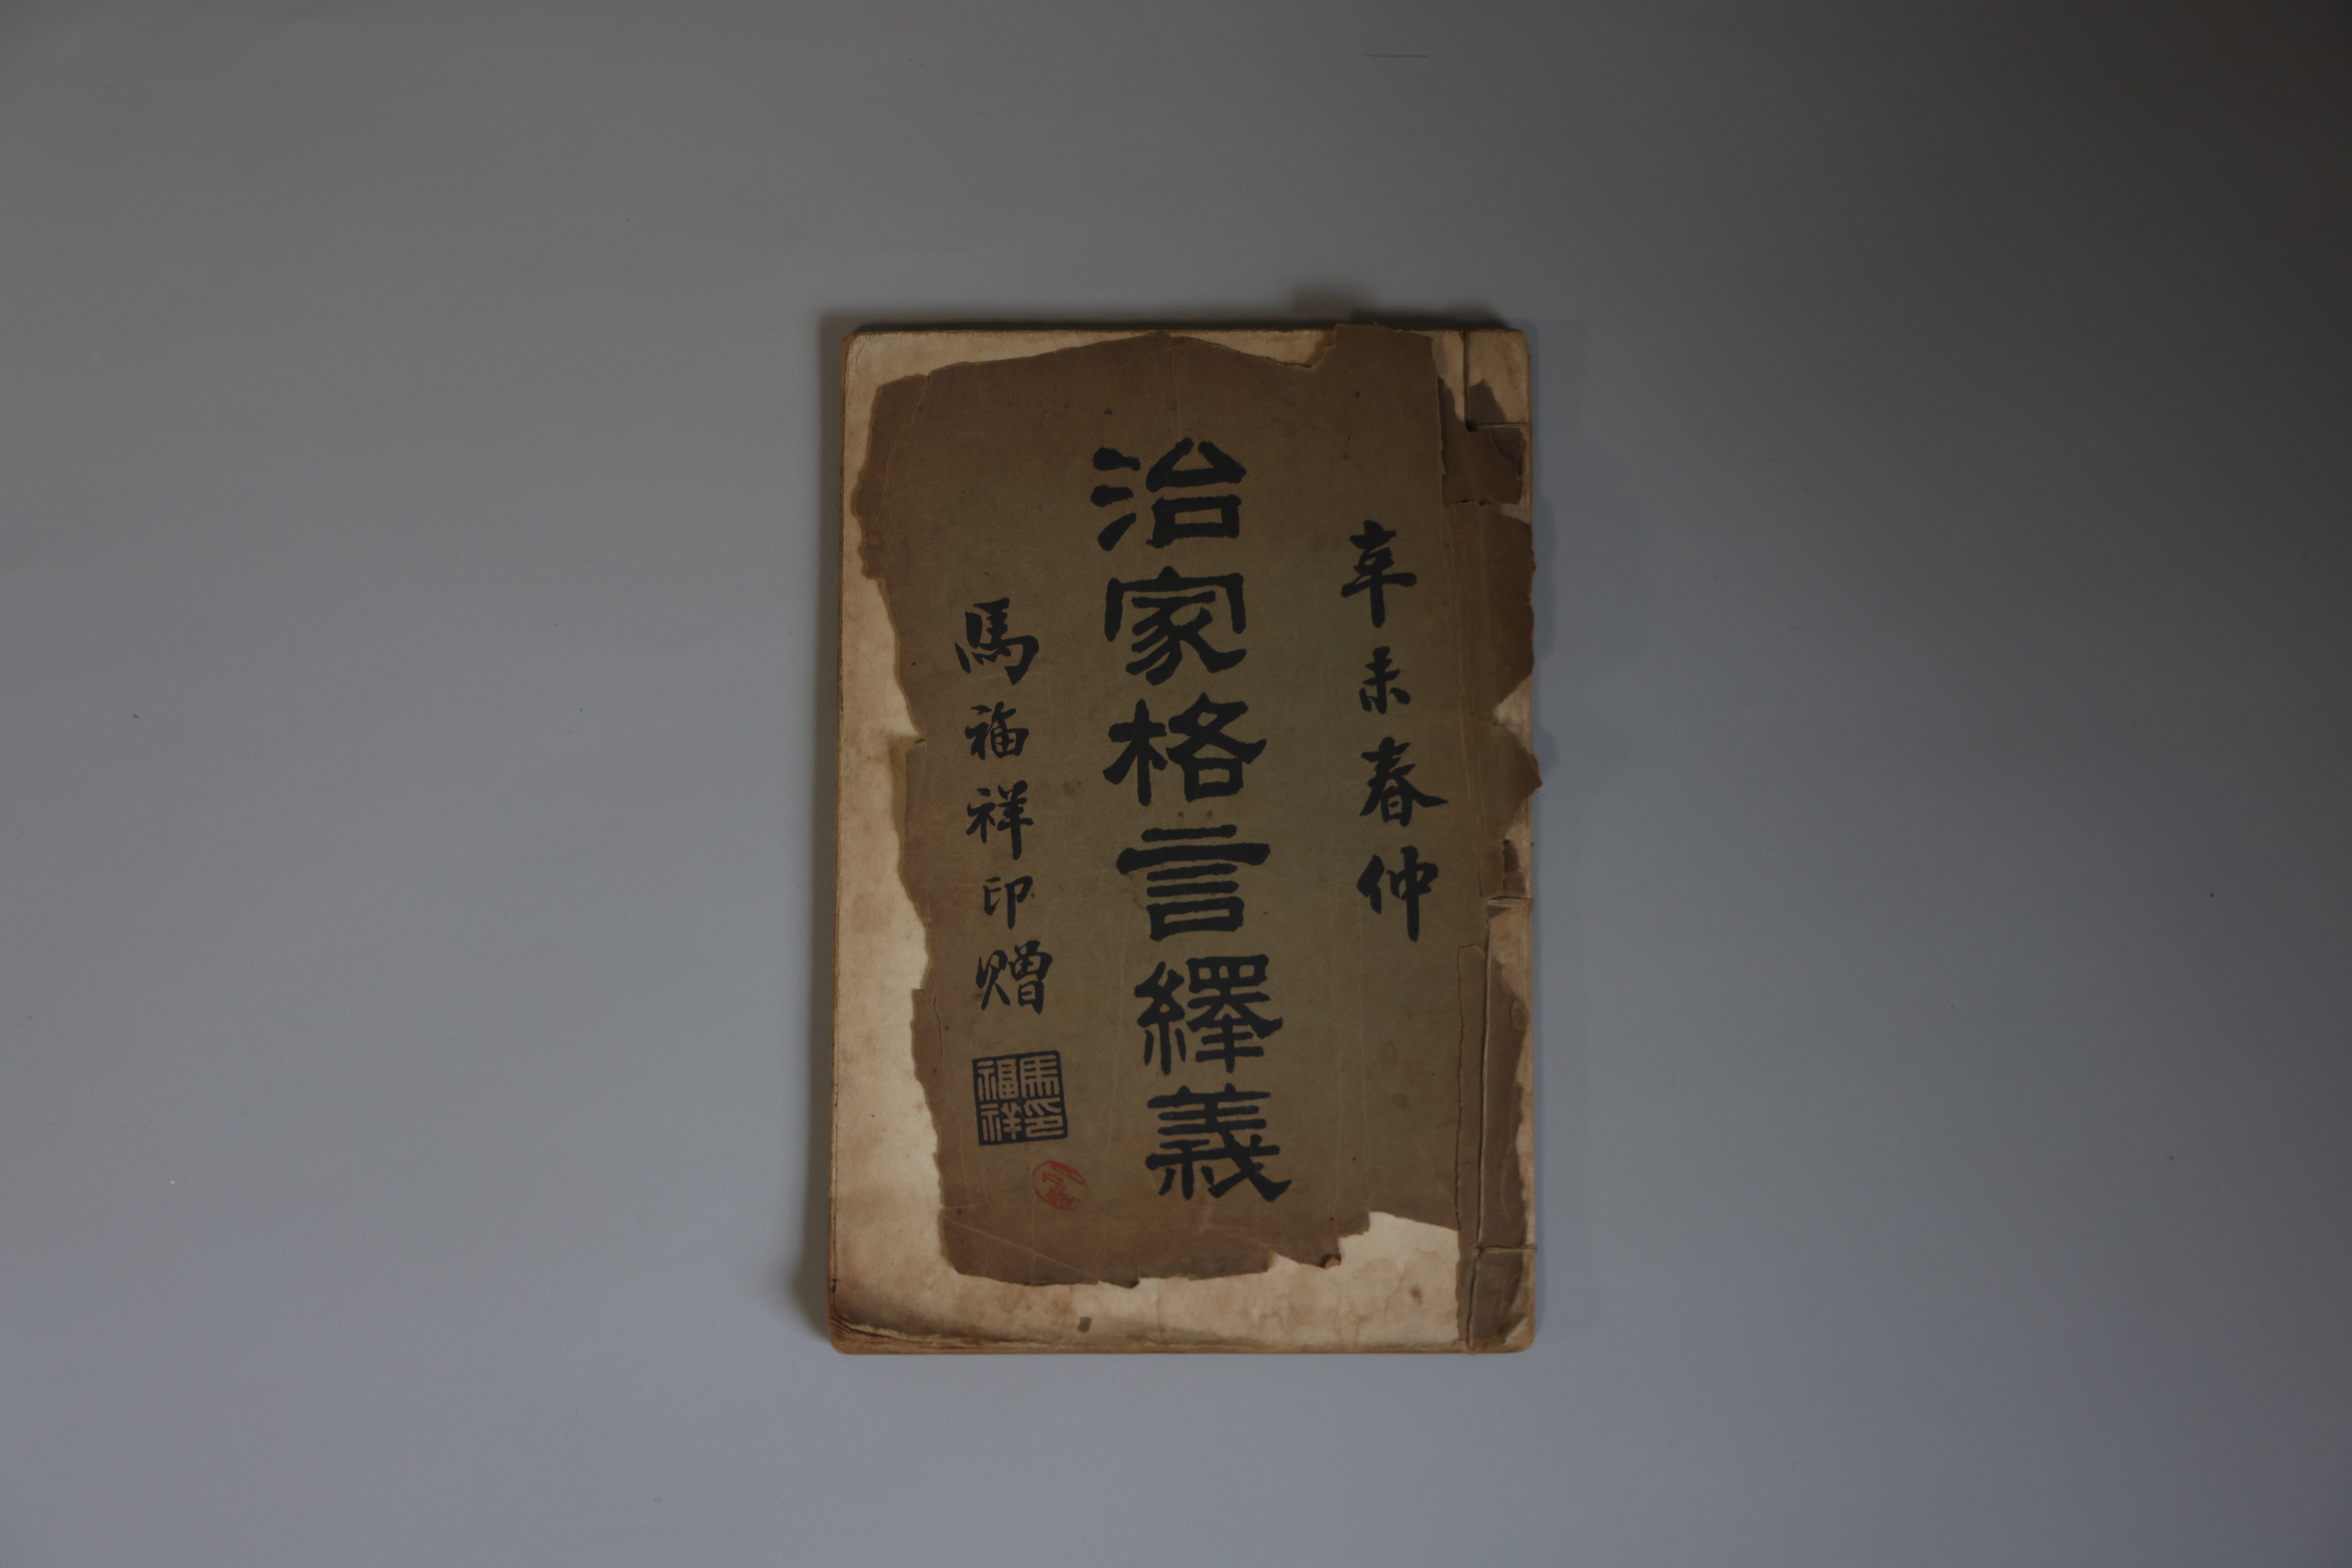 辛未春仲
治家格言繹義
馬福祥印贈
馬福祥印